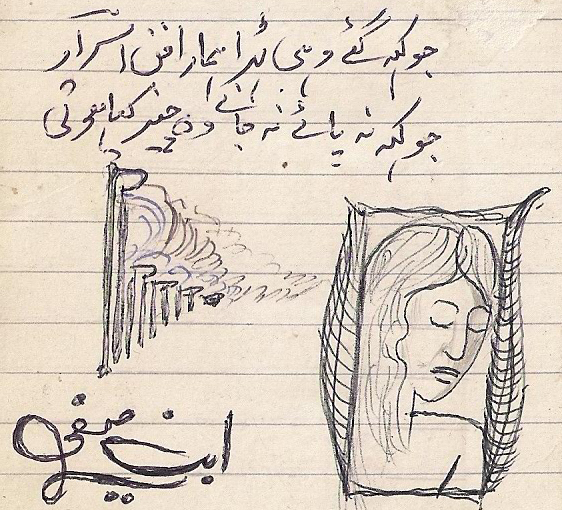 جو کہہ گئے وہی ٹھہرا ہمارا فن اسرار
جو کہہ نہ پائے نہ جانے وہ چیز کیا ہوتی
ابن صفی